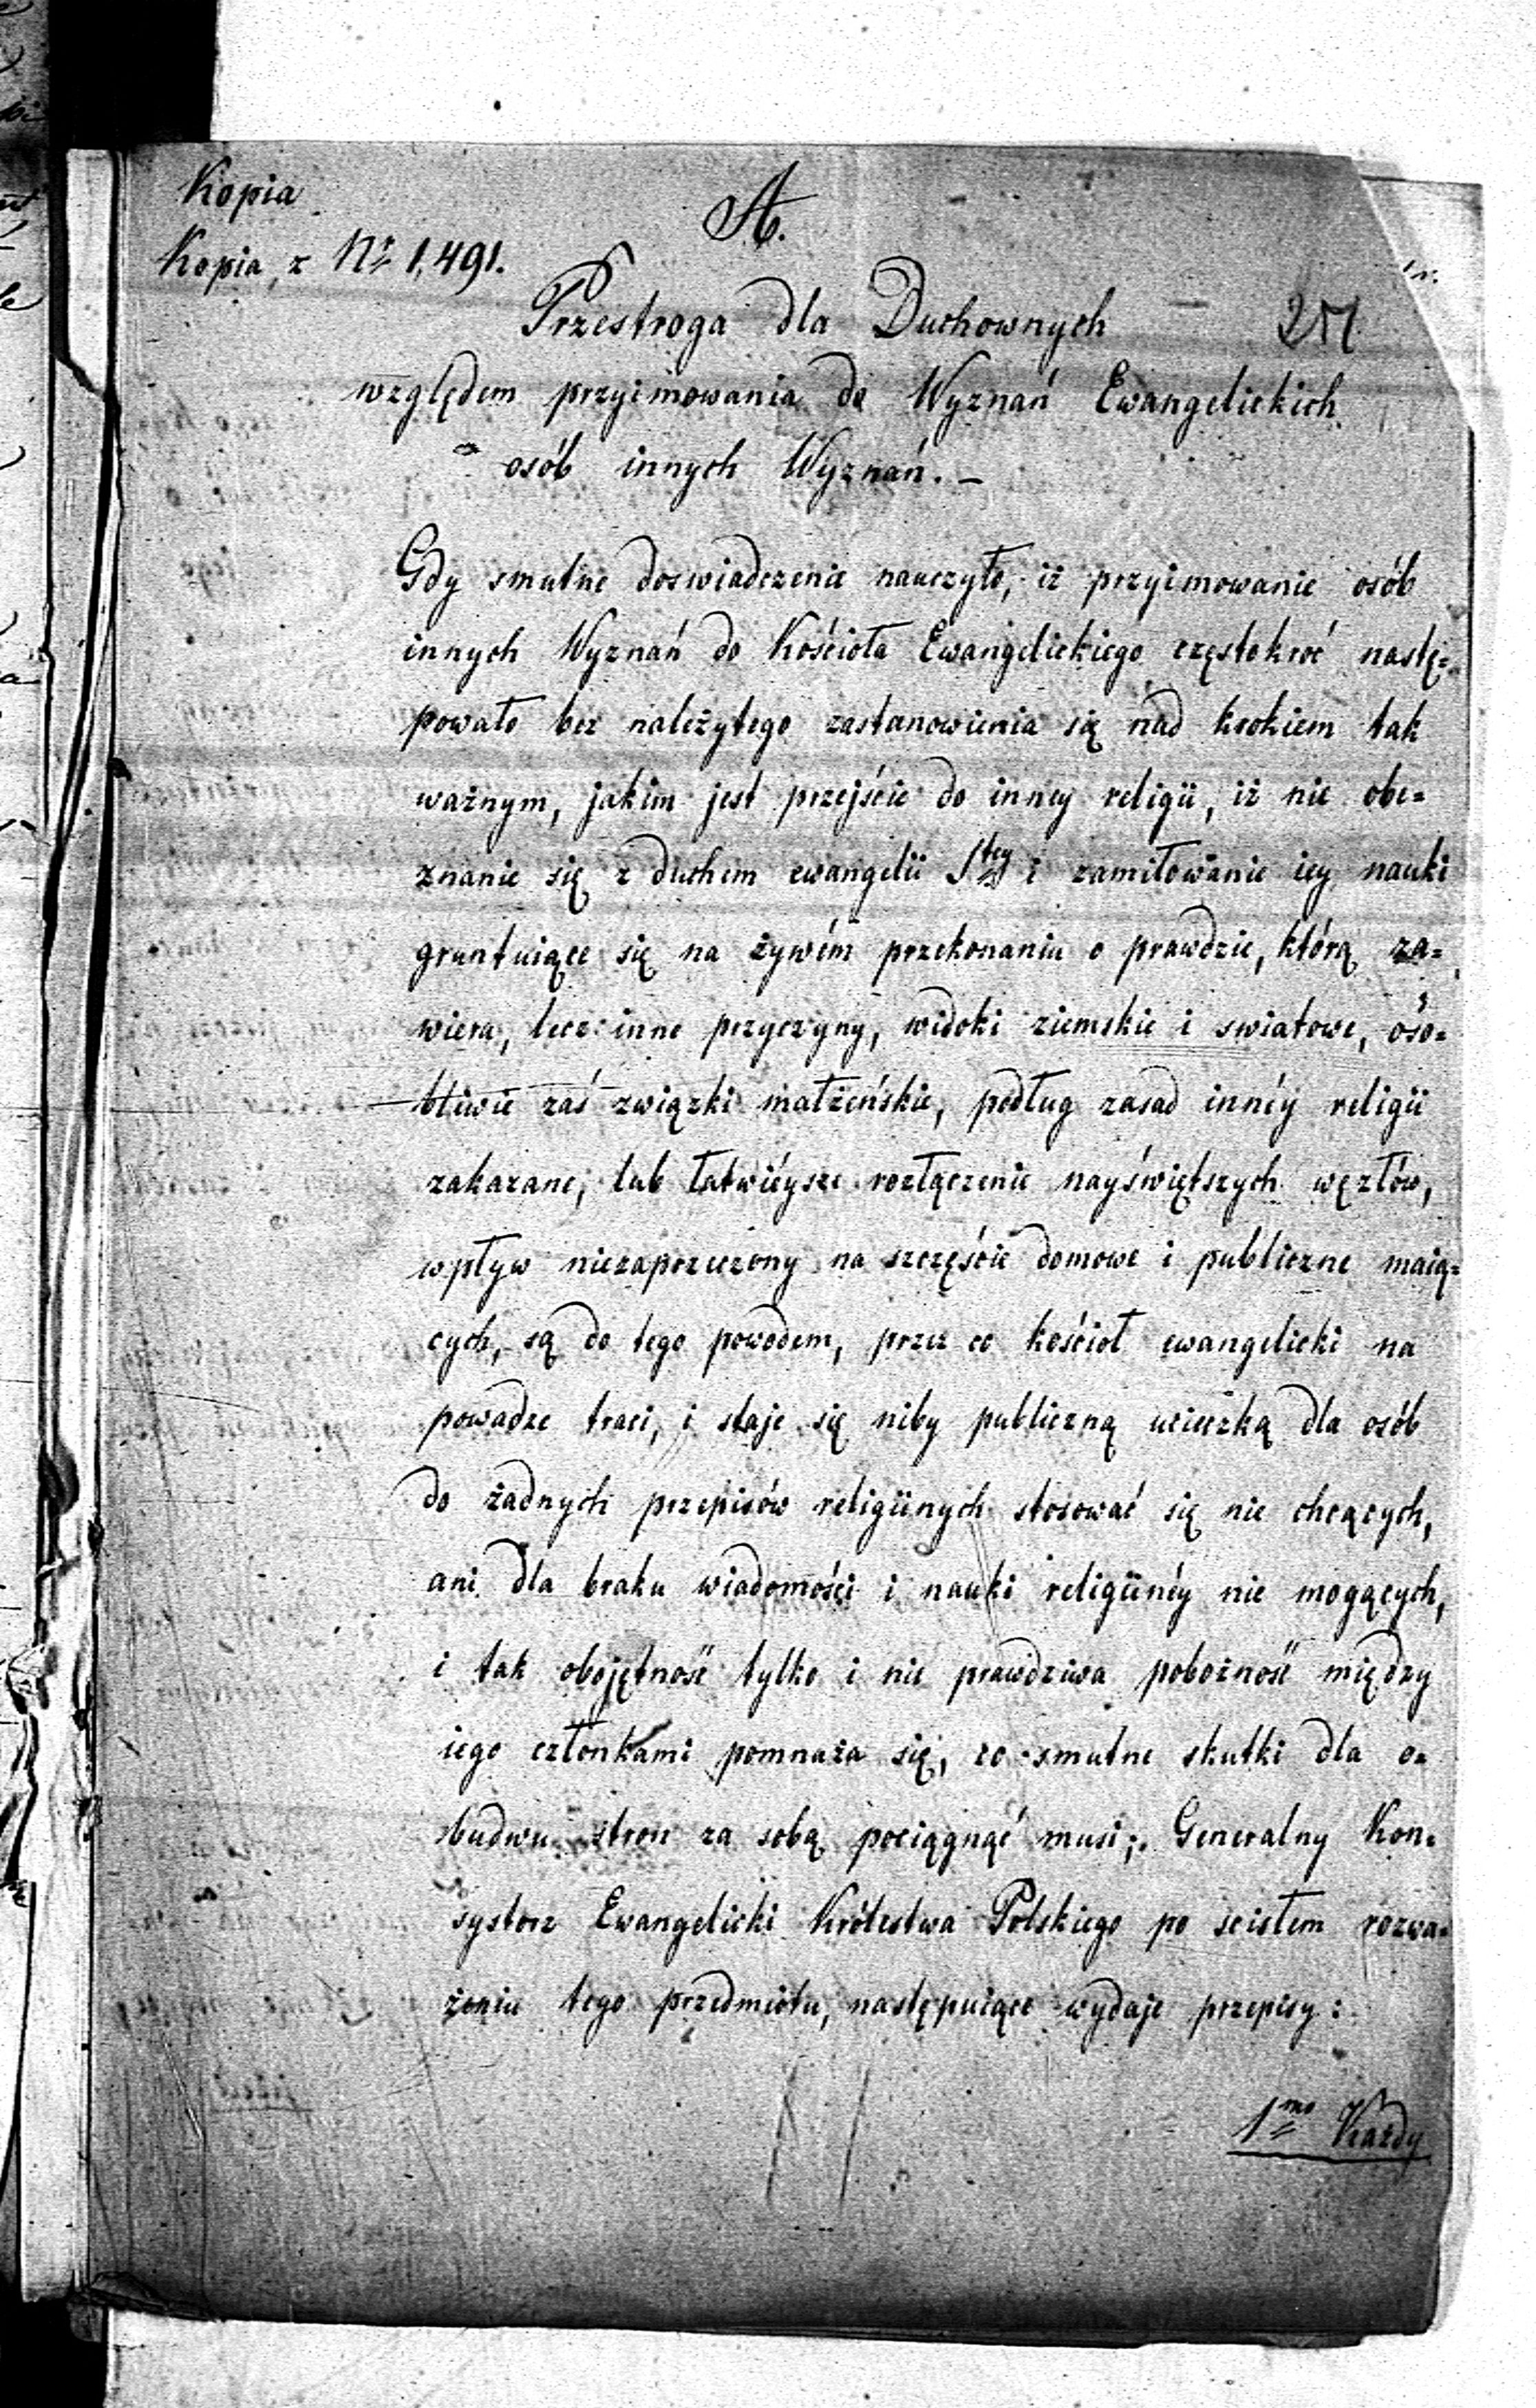 Kopia
A.
Kopia z Nr 1,491.
Przestroga dla Duchownych
względem przyimowania do Wyznań Ewangelickich
osób innych Wyznań. –
Gdy smutne doswiadczenie nauczyło, iż przyimowanie osób
innych Wyznań do Kościoła Ewangelickiego częstokroć nastę=
powało bez należytego zastanowienia się nad krokiem tak
ważnym, jakim jest przejście do inney religii, iż nie obe=
znanie się z duchem ewangelii Stey i zamiłowanie iey nauki
gruntuiące się na żywém przekonaniu o prawdzie, którą za=
wiera, lecz inne przyczyny, widoki ziemskie i swiatowe, oso=
bliwie zaś związki małżeńskie, podług zasad innéy religii
zakazane, lub łatwiéysze rozłączenie nayświętszych węzłów,
wpływ niezaprzeczony na szczęście domowe i publiczne maią=
cych, są do tego powodem, przez co kościoł ewangelicki na
powadze traci, i staje się niby publiczną ucieczką dla osób
do żadnych przepisów religiinych stosować się nie chcących,
ani dla braku wiadomości i nauki religiinéy nie mogących,
i tak obojętność tylko i nie prawdziwa pobożność między
iego członkami pomnaża się, co smutne skutki dla o=
budwu stron za sobą pociągnąć musi; Generalny Kon=
systorz Ewangelicki Królestwa Polskiego po scisłem rozwa=
żeniu tego przedmiotu, następuiące wydaje przepisy:
1mo Każdy